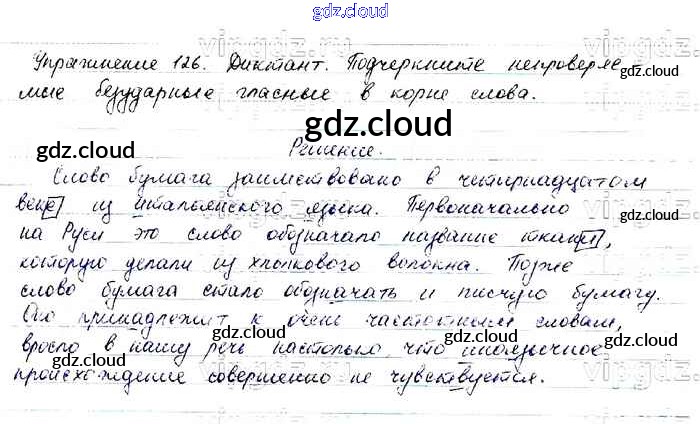 gdz.cloud
gdz.cloud
Упражнение 126. Диктант. Подчеркните непроверяе
мые безударные гласные в корне слова.
Решение.
Слово бумага заимствовано в четырнадцатом
веке из итальянского языка. Первоначально
на Руси это слово обозначало название ткани,
которую делали из хлопкового волокна. Позже
слово бумага стало обозначать и писчую бумагу.
Оно принадлежит к очень частотным словам,
вросло в нашу речь настолько, что иноязычное
происхождение совершенно не чувствуется.
gdz.cloud
gdz.cloud
gdz.cloud
gdz.cloud
gdz.cloud
gdz.cloud
gdz.cloud
gdz.cloud
gdz.cloud
gdz.cloud
gdz.cloud